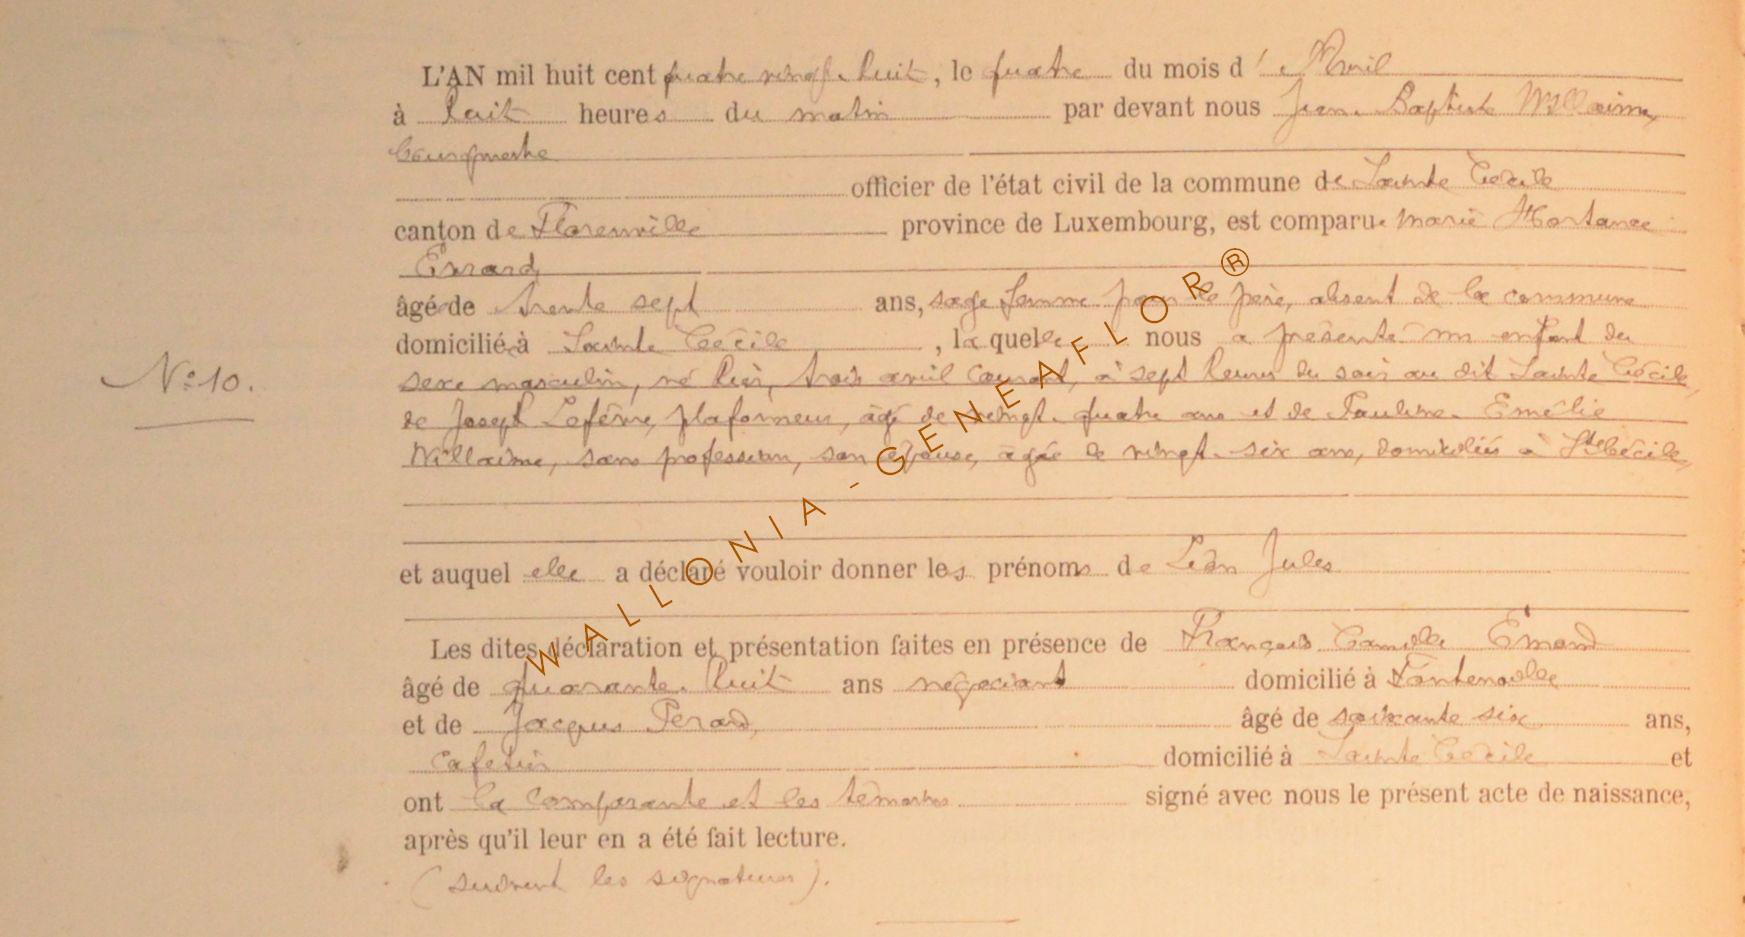 L'AN mil huit cent quatre vingt-huit, le quatre du mois d'Avril
à huit heures du matin par devant nous Jean-Baptiste Willaime,
bourgmestre
officier de l'état civil de la commune de Sainte Cécile
canton de Florenville province de Luxembourg, est comparue Marie Hortance
Evrard,
âgé de trente sept ans, sage femme pour le père, absent de la commune
domicilié à Sainte Cécile, laquelle nous a présenté un enfant du
N° 10.
sexe masculin, né hier, trois avril courant, à sept heures du soir au dit Sainte Cécile,
de Joseph Lefèvre, plafonneur, âgé de vingt-quatre ans et de Pauline-Emélie
Willaime, sans profession, son épouse, âgée de vingt-six ans, domiciliés à Ste Cécile,
et auquel elle a déclaré vouloir donner les prénoms de Léon Jules
Les dites déclaration et présentation faites en présence de François Camille Emond
âgé de quarante-huit ans négociant domicilié à Fontenoille
et de Jacques Perard, âgé de soixante six ans,
cafetier domicilié à Sainte Cécile et
ont la comparante et les témoins signé avec nous le présent acte de naissance,
après qu'il leur en a été fait lecture.
(suivent les signatures).
WALLONIA - GENEAFLOR®